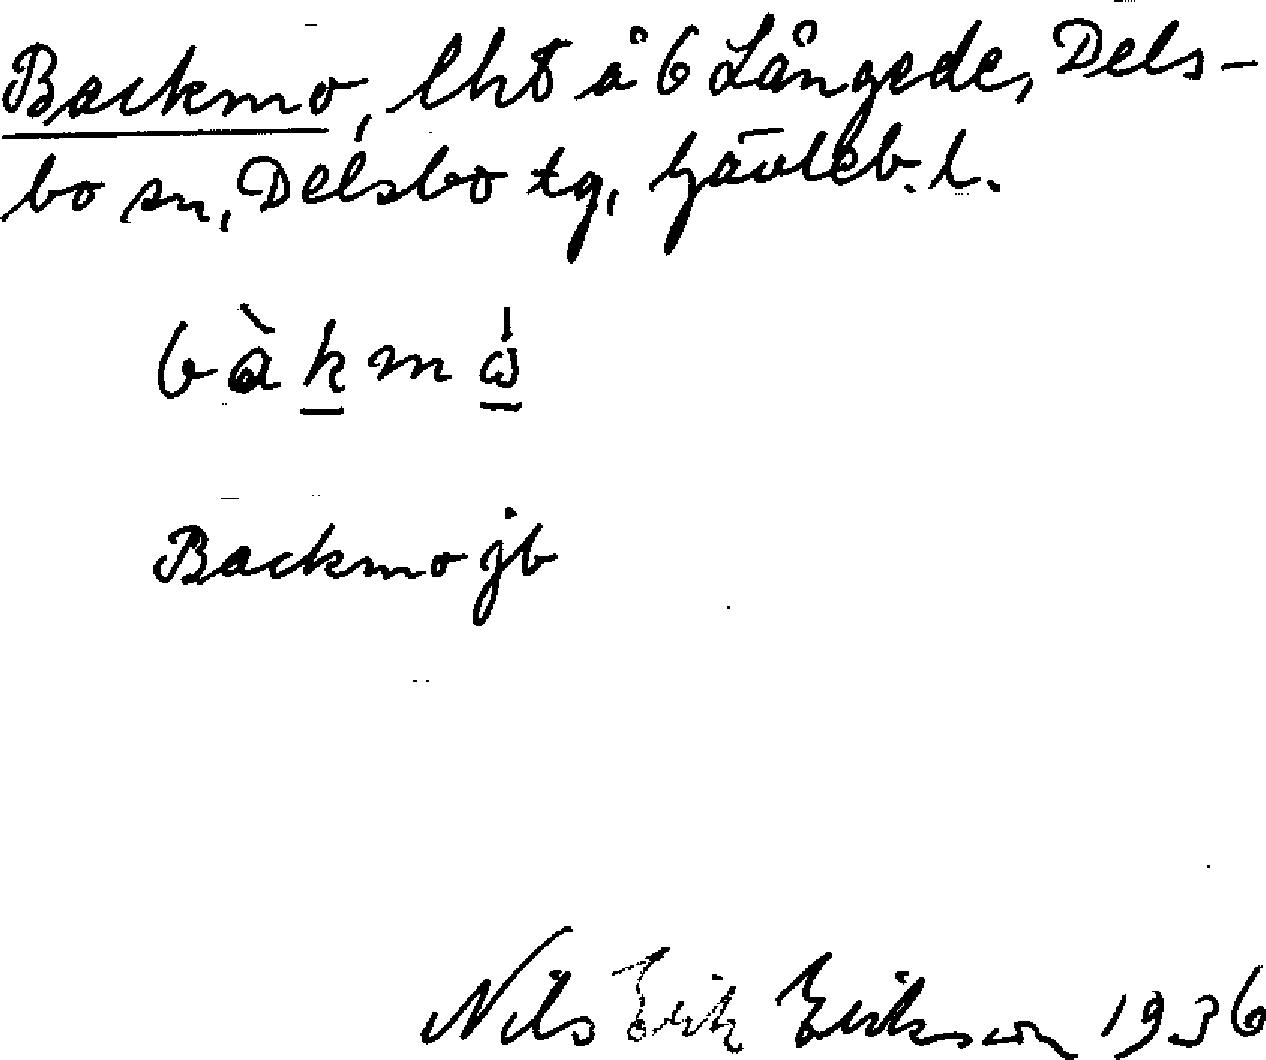 Backmo, lht å 6 Långede, Dels-
bo sn, Delsbo tg, Gävleb. l.
bàkmω
Backmo jb
Nils Erik Erikson 1936